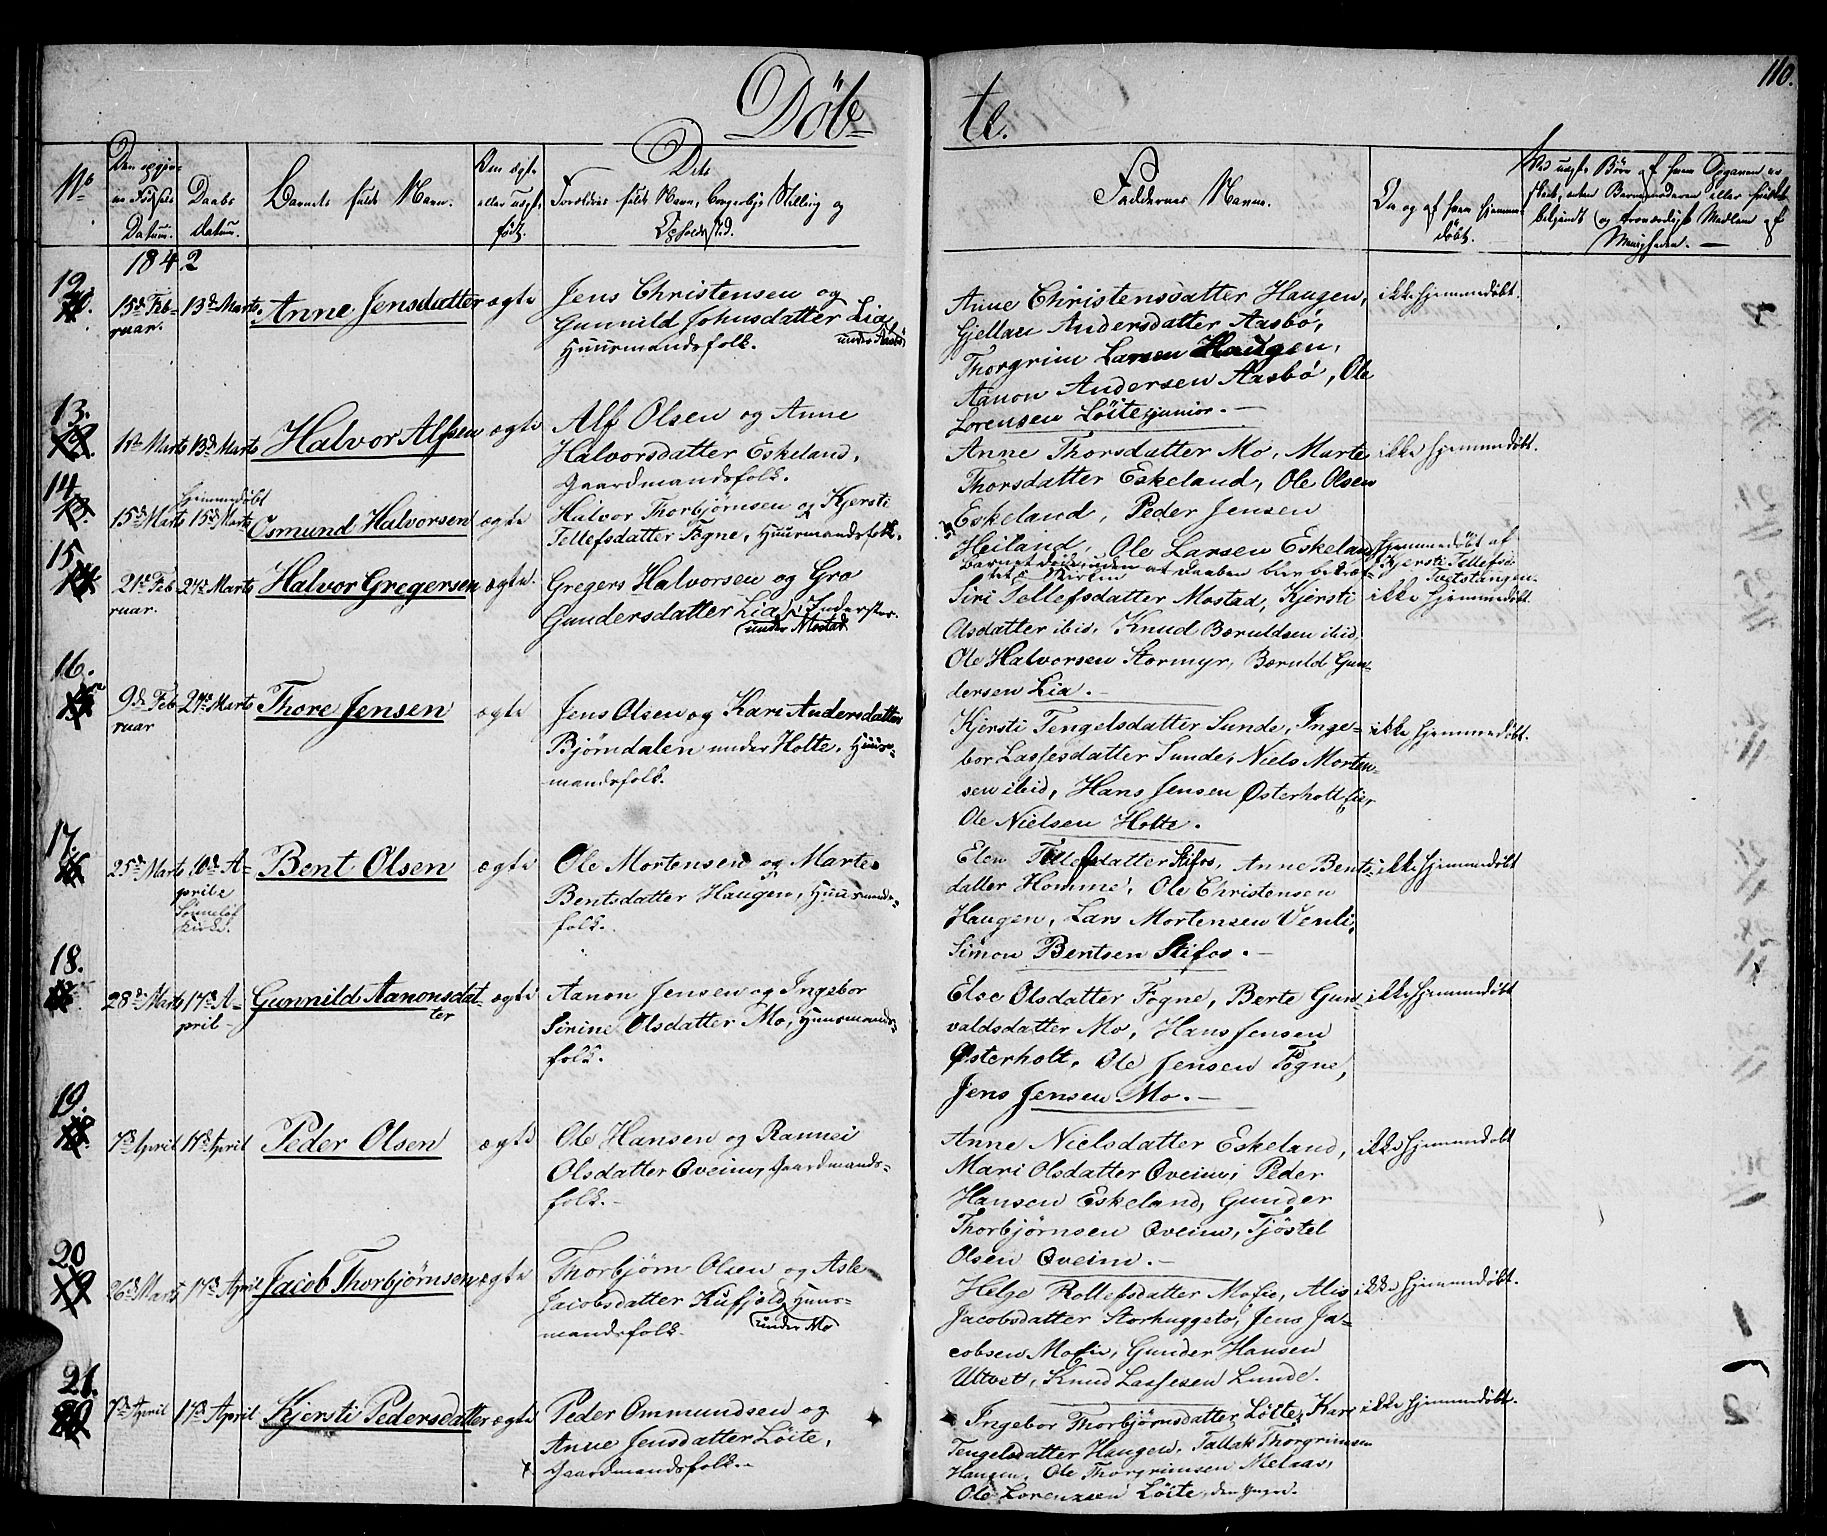 110.
Döb-
te.
No
Den opgjv-
ne Födsels
Datum.
Daabs
Datum.
Barnets fulde Navn.
Den ægte
eller uægte
født.
Dets
Forældres fulde Navn, borgerlige Stilling og
Opholdssted.
Faddernes Navne.
Om og af hvem hjemme-
döbt.
Ved uægte Børn af hvem Opgaven er
skeet, enten Barnemoderen eller hvilket
bekjendt og troværdigt Medlem af
Menigheden.
1842
12.
15de Feb-
ruar.
13de Marts.
Anne Jensdatter
ægte
Jens Christensen og
Gunnild Johnsdatter Lia
under Aasbö
Huusmandsfolk.
Anne Christensdatter Haugen,
Gjellau Andersdatter Aasbö,
Thorgrim Larsen Haugen,
Aanon Andersen Aasbö, Ole
Lorensen Löite junior.
ikke hjemmedöbt.
13.
12.
1ste Marts
13de Marts
Halvor Alfsen
ægte
Alf Olsen og Anne
Halvorsdatter Eskeland,
Gaardmandsfolk.
Anne Thorsdatter Mo, Marte
Thorsdatter Eskeland, Ole Olsen
Eskeland, Peder Jensen
Heiland, Ole Larsen Eskeland
ikke hjemmedöbt.
14.
13.
15de Marts
hjemmedöbt
15de Marts
Osmund Halvorsen
ægte
Halvor Thorbjørnsen og Kjersti
Tellefsdatter Fogne, Huusmandsfolk.
Barnet döde, uden at Daaben blev bekræf-
tet i Kirken
hjemmedöbt af
Kjersti Tellefsd.
15.
14.
21de Feb
ruar.
27de Marts
Halvor Gregersen
ægte.
Gregers Halvorsen og Gro
Gundersdatter Lia, Inderster.
under Mostad
Siri Tellefsdatter Mostad, Kjersti
Olsdatter ibid, Knud Bæruldsen ibid,
Ole Halvorsen Stormyr, Bæruld Gun-
dersen Lia.
ikke hjemmedöbt.
16.
15.
9de Feb
ruar
27de Marts
Thore Jensen
ægte
Jens Olsen og Kari Andersdatter
Björndalen under Holte, Huus-
mandsfolk.
Kjersti Tengelsdatter Sunde, Inge-
bor Lassesdatter Sunde, Niels Morten-
sen ibid, Hans Jensen Østerholt,
Ole Nielsen Holte.
ikke hjemmedöbt.
17.
16
25de Marts
10de A-
prile
Söndeløf
Kirke.
Bent Olsen
ægte
Ole Mortensen og Marte
Bentsdatter Haugen, Huusmands-
folk.
Elen Tellefsdatter Stifos, Anne Bents-
datter Homme, Ole Christensen
Haugen, Lars Mortensen Venli,
Simon Bentsen Stifos.
ikke hjemmedöbt
18.
28de Marts
17de A-
pril
Gunnild Aanonsdat-
ter
ægte
Aanon Jensen og Ingebor
Sirine Olsdatter Mo, Huusmands-
folk.
Else Olsdatter Fogne, Berte Gun-
valdsdatter Mo, Hans Jensen
Østerholt, Ole Jensen Fogne,
Jens Jensen Mo.
ikke hjemmedöbt
19.
18.
7de April
17de April
Peder Olsen
ægte
Ole Hansen og Rannei
Olsdatter Øveim, Gaardmands-
folk.
Anne Nielsdatter Eskeland,
Mari Olsdatter Øveim, Peder
Hansen Eskeland, Gunder
Thorbjørnsen Øveim, Tjöstel
Olsen Øveim.
ikke hjemmedöbt
20
19
26de Marts
17de April
Jacob Thorbjørnsen
ægte
Thorbjørn Olsen og Asle
Jacobsdatter Kufjeld, Huus-
under Mo
mandsfolk.
Helge Rollefsdatter Mofie, Alis
Jacobsdatter Storhuggetö, Jens Ja-
cobsen Mofie, Gunder Hansen
Utvett, Knud Lassesen Lunde.
ikke hjemmedöbt.
21.
20.
7de April
17de April
Kjersti Pedersdatter
ægte
Peder Ommundsen og
Anne Jensdatter Löite,
Gaardmandsfolk.
Ingebor Thorbjørnsdatter Löite, Kari
Tengelsdatter Haugen, Tallak Thorgrimsen
Haugen, Ole Thorgrimsen Melaas,
Ole Lorensen Löite, den yngre.
ikke hjemmedöbt.